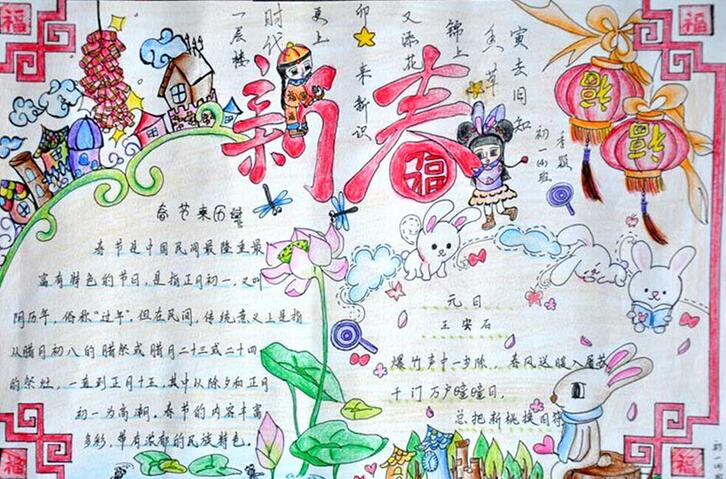 福
福
寅去旧知
锦上
又添花
卯
来新识
更上
时代
一层楼
新春
福
福
福
初一
班
春节来历
春节是中国民间最隆重最
富有特色的节日,是指正月初一,又叫
阴历年,俗称“过年”.但在民间,传统意义上是指
从腊月初八的腊祭或腊月二十三或二十四
的祭灶,一直到正月十五,其中以除夕和正月
初一为高潮.春节的内容丰富
多彩,带有浓郁的民族特色.
元日
王安石
爆竹声中一岁除,春风送暖入屠苏
千门万户曈曈日,
总把新桃换旧符
福
福